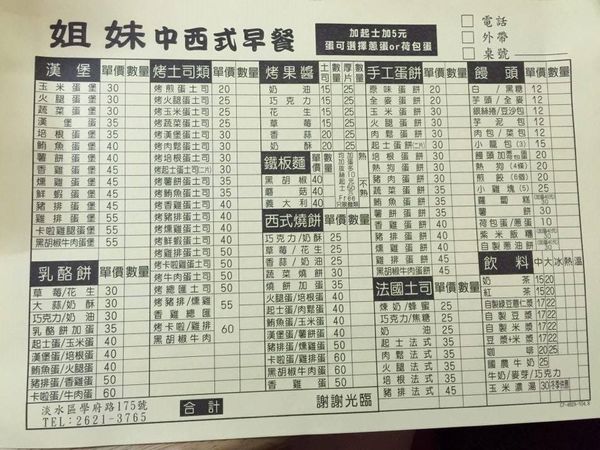 姐妹中西式早餐
加起士加5元
蛋可選擇蔥蛋or荷包蛋
電話
外帶
桌號
漢堡 單價 數量
玉米蛋堡 30
火腿蛋堡 30
蔬菜蛋堡 30
漢堡蛋堡 35
培根蛋堡 35
薯餅蛋堡 35
香雞蛋堡 45
燻雞蛋堡 45
鮪魚蛋堡 45
鮮蝦蛋堡 45
豬排蛋堡 50
雞排蛋堡 50
卡啦雞腿蛋堡 55
黑胡椒牛肉蛋堡 55
乳酪餅 單價 數量
草莓/花生 30
大蒜/奶酥 30
巧克力/奶油 30
乳酪餅加蛋 35
起士蛋/玉米蛋 40
漢堡蛋/培根蛋 40
火腿蛋/薯餅蛋 40
鮪魚蛋/香雞蛋 50
豬排蛋/香雞蛋 60
卡啦蛋/燻雞蛋 60
烤土司類 單價 數量
烤煎蛋土司 20
烤火腿蛋土司 25
烤玉米蛋土司 25
烤蔬菜蛋土司 25
烤漢堡蛋土司 30
烤培根蛋土司 30
烤肉鬆蛋土司 30
烤起士蛋土司(二片) 30
烤薯餅蛋土司 35
烤鮪魚蛋土司 35
烤香雞蛋土司 40
烤燻雞蛋土司 40
烤鮮蝦蛋土司 40
烤豬排蛋土司 45
烤雞排蛋土司 45
烤卡啦蛋土司 50
烤牛肉蛋土司 50
烤總匯土司 50
烤豬排/燻雞
香雞總匯 55
烤卡啦/雞排
黑胡椒牛肉 60
烤果醬 土司 厚片 數量
奶油 15 25
巧克力 15 25
花生 15 25
草莓 15 25
香蒜 20 25
奶酥 20 25
鐵板麵 單價 數量
黑胡椒 40
蘑菇 40
義大利 40
西式燒餅 單價 數量
巧克力/奶酥 25
草莓/花生 25
香蒜/奶油 25
蔬菜燒餅 30
燒餅加蛋 30
火腿蛋/培根蛋 40
起士蛋/肉鬆蛋 40
鮪魚蛋/玉米蛋 40
漢堡蛋/薯餅蛋 40
豬排蛋/燻雞蛋 50
卡啦蛋/牛肉蛋 50
香雞蛋 50
手工蛋餅 單價 數量
原味蛋餅 20
全麥蛋餅 20
蔥蛋蛋餅 20
玉米蛋餅 25
火腿蛋餅 25
起士蛋餅(二片) 30
培根蛋餅 30
熱狗蛋餅 30
豬肉蛋餅 30
肉鬆蛋餅 30
蔬菜蛋餅 30
薯餅蛋餅 35
鮪魚蛋餅 35
香雞蛋餅 40
燻雞蛋餅 40
豬排蛋餅 45
雞排蛋餅 45
卡啦雞蛋餅 50
黑胡椒牛肉蛋餅 50
法國土司 單價 數量
煉奶/蜂蜜 25
巧克力/焦糖 25
奶油 25
起士法式 35
肉鬆法式 35
火腿法式 35
培根法式 35
豬排法式 45
饅頭 單價 數量
白/黑糖 12
芋頭/全麥 12
銀絲捲/豆沙包 12
芋泥包 12
肉包/菜包 12
小籠包(3) 15
饅頭加蛋 20
熱狗(4條) 20
煎餃(6個) 20
小雞塊(5) 25
蘿蔔糕 20
薯餅 20
荷包蛋/蔥蛋 10
紫米飯糰 30
自製蔥油餅 30
飲料 中 大 冰 熱 溫
奶茶 15 20
紅茶 15 20
自製綠豆薏仁漿 17 22
自製豆漿 17 22
自製米漿 17 22
豆漿+米漿 17 22
咖啡 20 25
國農牛奶 25
牛奶/麥芽/巧克力 25
玉米濃湯 30 冬季供應
淡水區學府路175號
TEL:2621-3765
合計
謝謝光臨